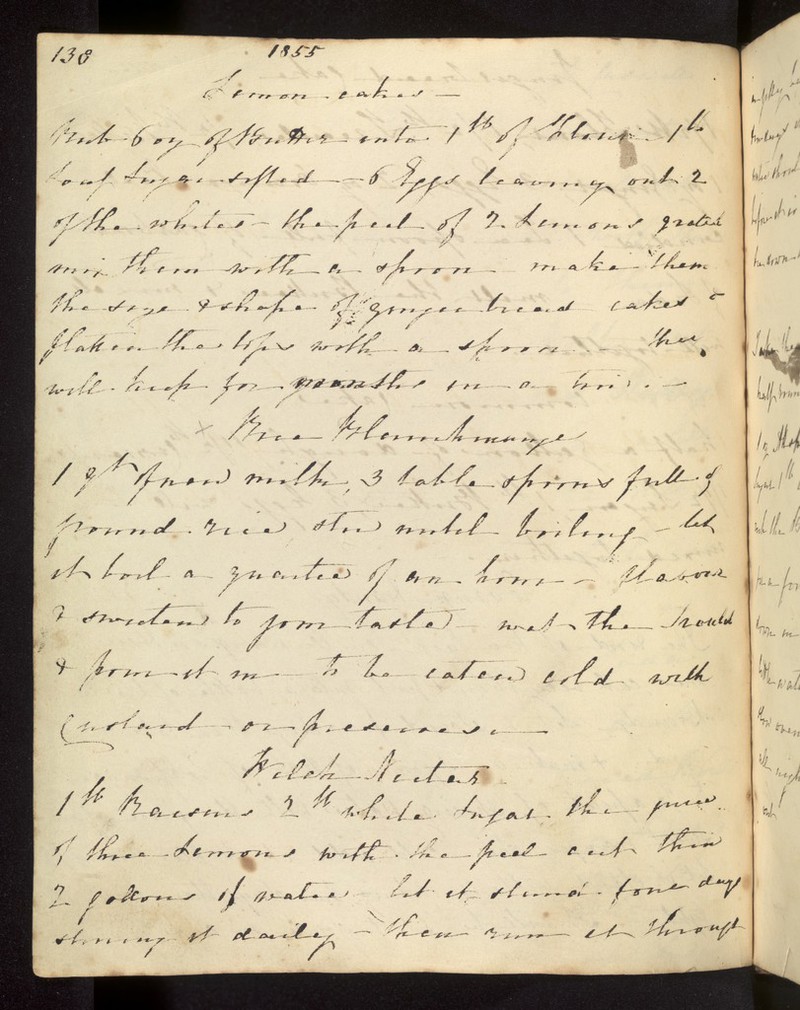 138 1855
Lemon cakes —
Rub 6 oz of Butter into 1 lb of Flour 1 lb
loaf Sugar sifted — 6 Eggs leaving out 2
of the whites — the peel of 2 Lemons grated
mix them with a spoon make them
the size & shape of gingerbread cakes &
flatten the tops with a spoon — they
will keep for months in a tin . —
x Rice Blanchmange
1 qt of new milk, 3 table spoons full of
ground rice stir until boiling — let
it boil a quarter of an hour — flavour
& sweeten to your taste wet the mould
& pour it in to be eaten cold with
Custard or preserves —
Welch Nectar
1 lb Raisins 2 lb white Sugar the juice
of three Lemons with the peel cut thin
2 gallons of water let it stand four days
stirring it daily — then run it through